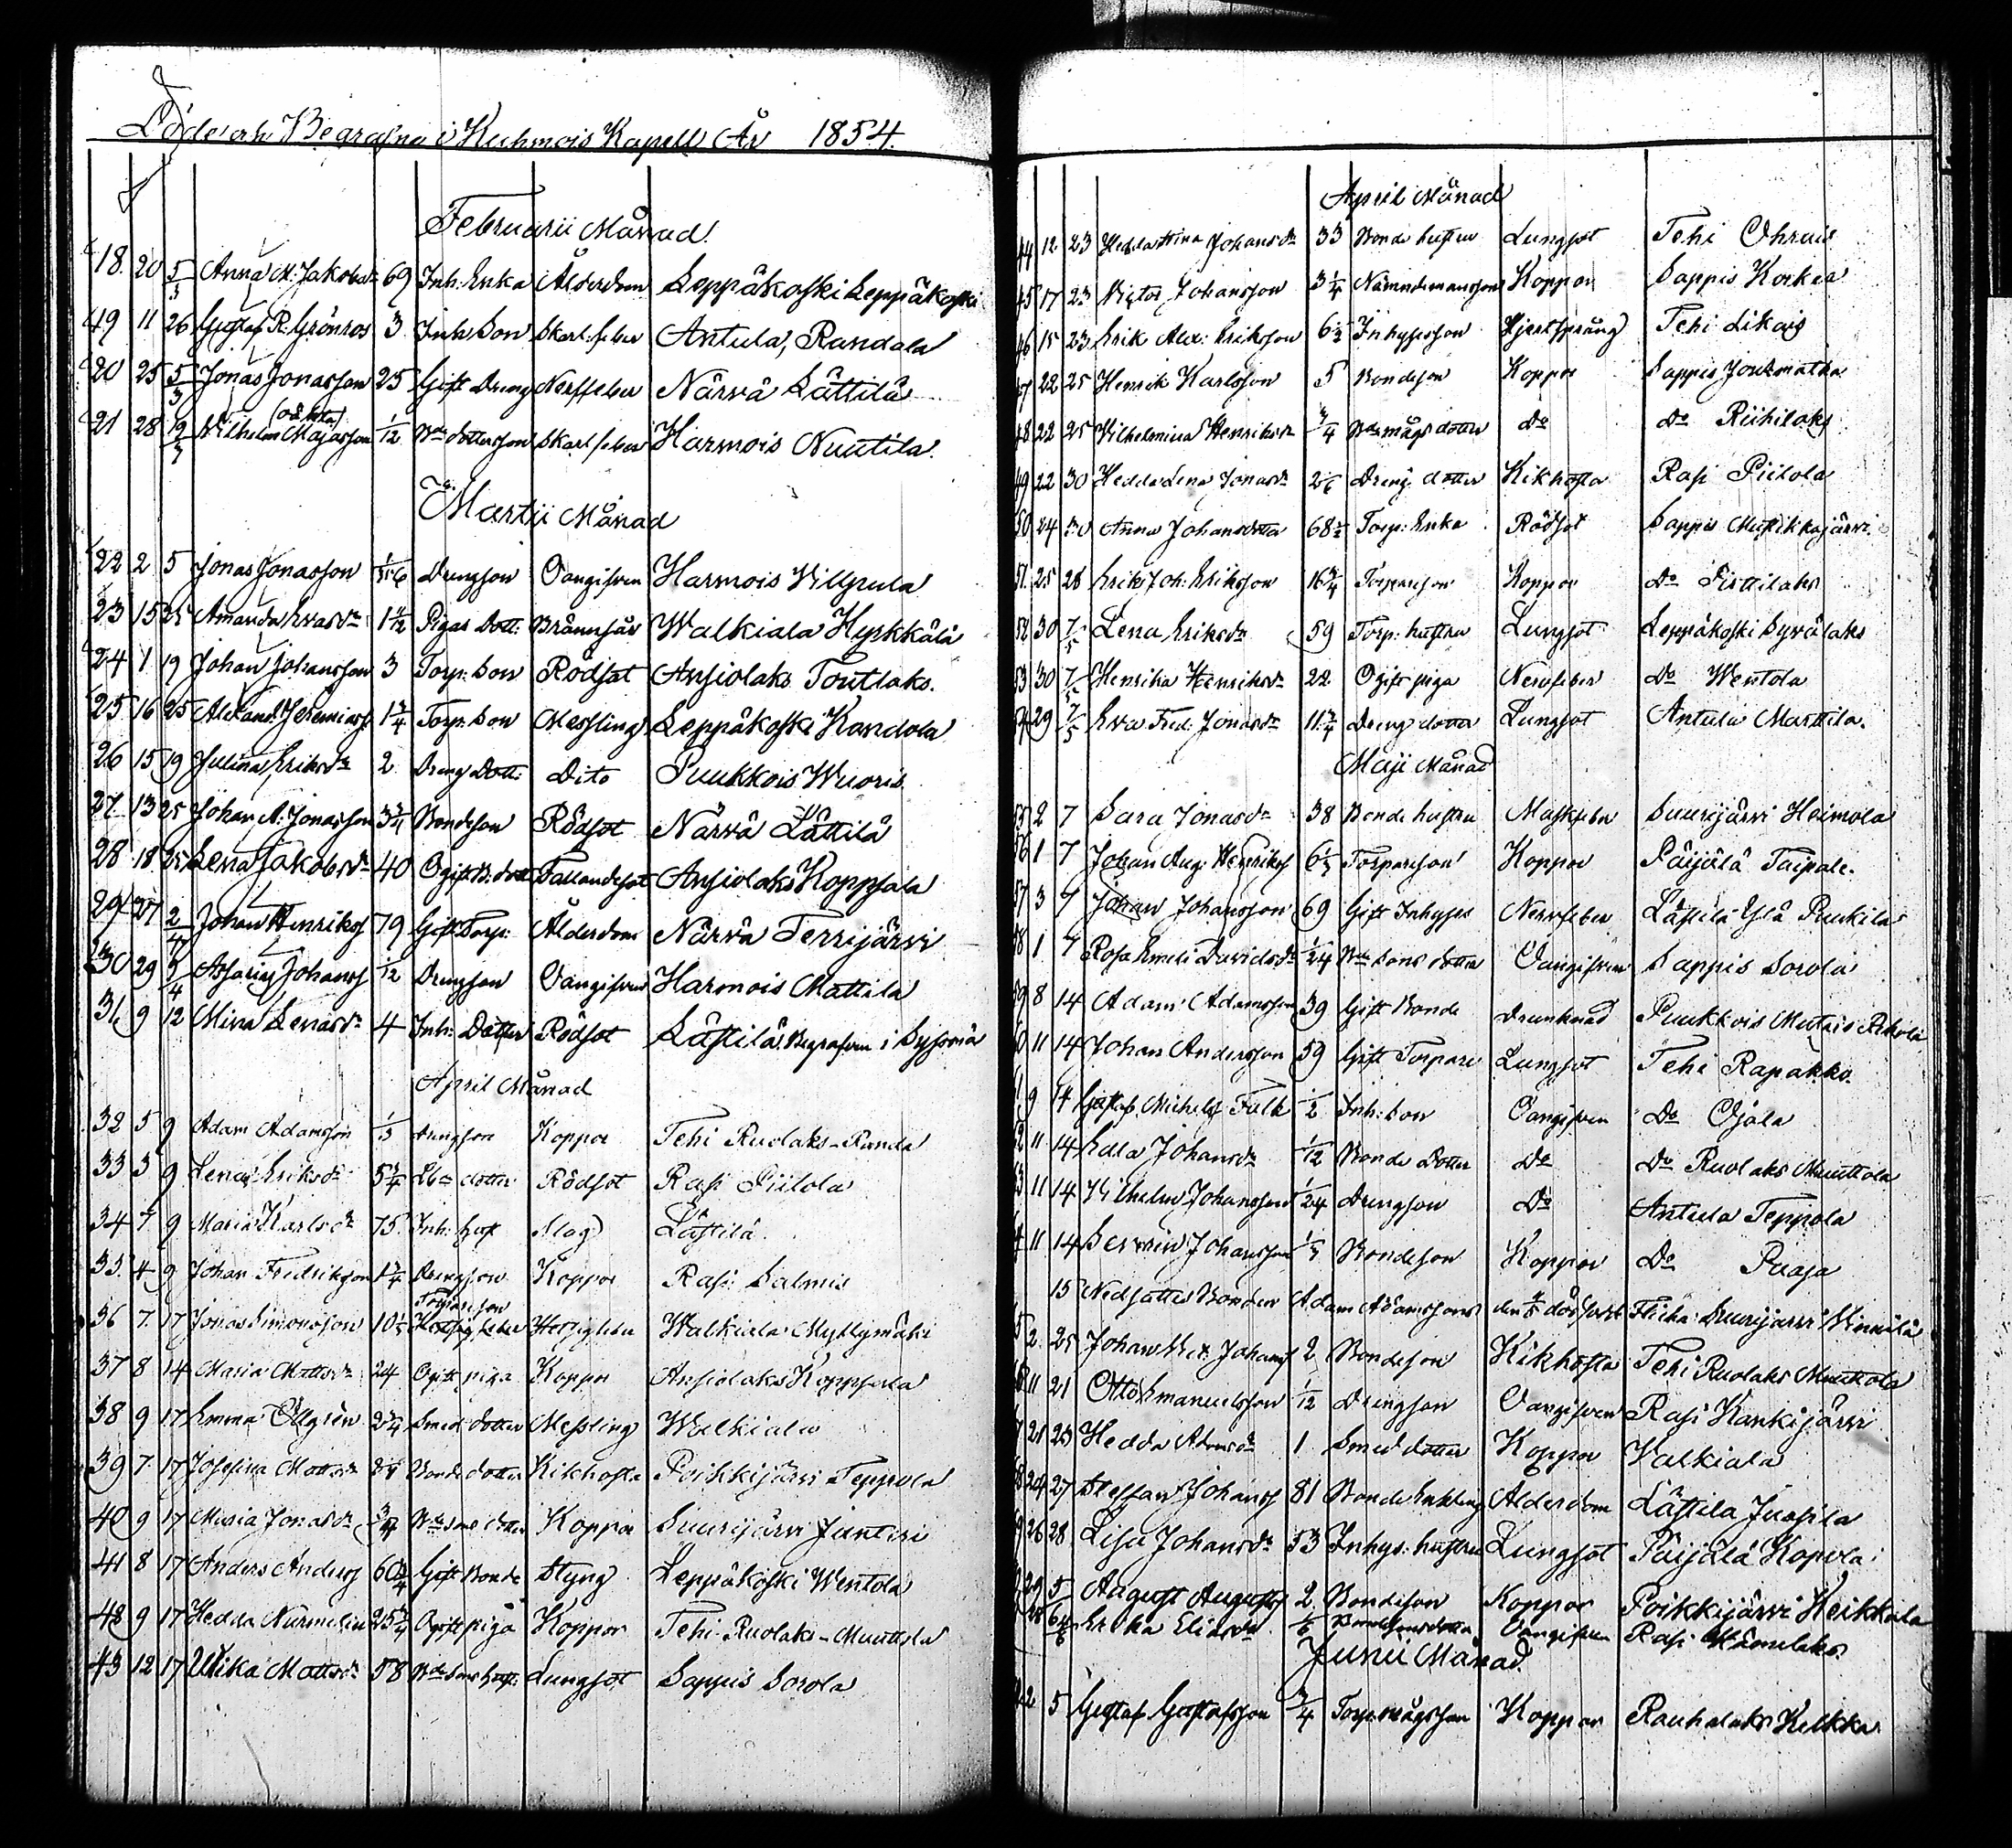 Döde och Begrafna i Kuhmois Kapell År 1854.
Februarii Månad.
18. 20 5/3 Anna M. Jakobsdr 69 Inh. Enka Ålderdom Leppäkoski Leppäkoski
19 11 26 Gustaf R. Grönroos 3 Inh Son Skarl. feber Antula, Randala
20 25 5/3 Jonas Jonasson 25 Gift Dreng Nerffeber Närvä Lättilä
21 28 Wilhelm Majasson (oäkta) 1/12 Bde dottersson Skarl feber Harmois Nuutila.
Martii Månad
22 2 5 Jonas Jonasson Drengson Oangifven Harmois Vilppula
23 15 25 Amanda Evasdr 1 1/2 Pigas Dott: Brännsår Walkiala Hyrkkälä
24 1 19 Johan Johansson 3 Torp: Son Rödsot Ansiolaks Toutlaks.
25 16 25 Alexand. Jeremiass. 1 3/4 Torp. Son Messling Leppäkoski Kandola
26 15 19 Julina Eriksdr 2 Dreng Dott: Dito Puukkois Wuoris
27 13 25 Johan A. Jonasson 3 3/4 Bondeson Rödsot Närvä Lättilä
28 18 25 Lena Jakobsdr 40 Ogift B. dott Fallandesot Ansiolaks Koppsala
29 27 2/4 Johan Henriks 79 Gift Torp: Ålderdom Närvä Terrijärvi
30 29 /4 Assarias Johans 1/12 Drengson Oangifven Harmois Mattila
31 9 12 Mina Lenasdr 4 Inh: Dotter Rödsot Lästilä Begrafven i Sysmä
April Månad
32 5 9 Adam Adamsson 1/3 Drengson Koppor Tehi Ruolaks-Randa
33 3 9 Lena Eriksdr 5 3/4 dotter Rödsot Rasi Piilola
34 7 9 Maria Karlsdr 75 Inh: hust Slag Lästilä
35 4 9 Johan Fredriksson 1 3/4 Drengson Koppor Rasi Salmis
36 7 17 Jonas Simonsson Torpareson Hetsig feber Walkiala Myllymäki
37 8 14 Maria Mattsdr 24 Ogift piga Koppor Ansiolaks Koppsala
38 9 17 Emma Ollgrén 2 3/4 Smed dotter Messling Walkiala
39 7 17 Josefina Mattsdr Bonde dotter Kikhosta Poikkijärvi Teppola
40 9 17 Maria Jonasdr 3/4 Bde sons dotter Koppor Suurijärvi Junteri
41 8 17 Anders Anders 60 3/4 Gift Bonde Styng Leppäkoski Wentola
42 9 17 Hedda Nurmelin 25 3/4 Ogift piga Koppor Tehi Ruolaks-Muuttola
43 12 17 Ulrika Mattsdr 58 Bde sons hust: Lungsot Sappis Sorola
April Månad
44 12 23 Hedda Stina Johansdr 33 Bonde hustru Lungsot Tehi Ohrais
45 17 23 Victor Johansson 3 1/4 Nämndemansson Koppor Sappis Korkea
46 15 23 Erik Alex: Eriksson 6 1/2 Inhysesson Hjertsprång Tehi Likais
47 22 25 Henrik Karlsson 5 Bondeson Koppor Sappis Joutmatka
48 22 25 Vilhelmina Henriksdr 3/4 Bde mågs dotter do Do Riihilaks
49 22 30 Hedda Lena Jonasdr 2 1/6 Dreng dotter Kikhosta Rasi Piilola
50 24 30 Anna Johansdotter 68 1/2 Torp: Enka Rödsot Sappis Mustikkajärvi
51. 25 28 Erik Joh: Eriksson 16 3/4 Torpareson Koppor Do Pirttilaks
52 30 7/5 Lena Eriksdr 59 Torp: hustru Lungsot Leppäkoski Syvälaks
53 30 7/5 Henrika Henriksdr 22 Ogift piga Nervfeber Do Wentola
54 29 7/5 Eva Fred: Jonasdr 11 3/4 Dreng dotter Lungsot Antula Marttila.
Maji Månad
55 2 7 Sara Jonasdr 38 Bonde hustru Maskfeber Suurijärvi Heimola
56 1 7 Johan Aug: Henriks 6 1/2 Torpareson Koppor Päijälä Taipale.
57 3 7 Johan Johansson 69 Gift Inhyses Nervfeber Lästilä Ylä Puukila
58 1 7 Rosa Emeli Davidsdr 1/24 Bde Sons dotter Oangifven Sappis Sorola
59 8 14 Adam Adamsson 39 Gift Bonde Drunknad Puukkois Mutais Rekola
60 11 14 Johan Andersson 59 Gift Torpare Lungsot Tehi Rapakko
9 14 Gustaf Michelss Falk 1/2 Inh: Son Oangifven Do Ojala
11 14 Edla Johansdr 1/12 Bonde Dotter Do Do Ruolaks Muuttola
11 14 Vilhelm Johansson 1/24 Drengson Do Antula Teppola
11 14 Severin Johansson Bondeson Koppor Do Paasa
15 Nedsattes Bonden Adam Adamssons den död född Flicka Suurijärvi Winnilä
2 25 Johan Johans 2 Bondeson Kikhosta Tehi Ruolaks Muuttola
11 21 Otto Emanuelsson 1/12 Drengson Oangifven Rasi Kankijärvi
21 23 Hedda Adamsdr 1 Smed dotter Koppor Valkiala
24 27 Steffan Johans 81 Bonde Enkling Ålderdom Lästilä Juusila
26 28 Lisa Johansdr 53 Inhys: hustru Lungsot Päijälä Kopola
29 5 August Augusts 2 Bondeson Koppor Poikkijärvi Heikkala
28 Erika Eliasdr 1/6 Bondesonsdotter Oangifven Rasi Hämelaks
Junii Månad.
2 5 Gustaf Gustafsson 3/4 Torp: mågs son Koppor Rauhalaks Kelkka